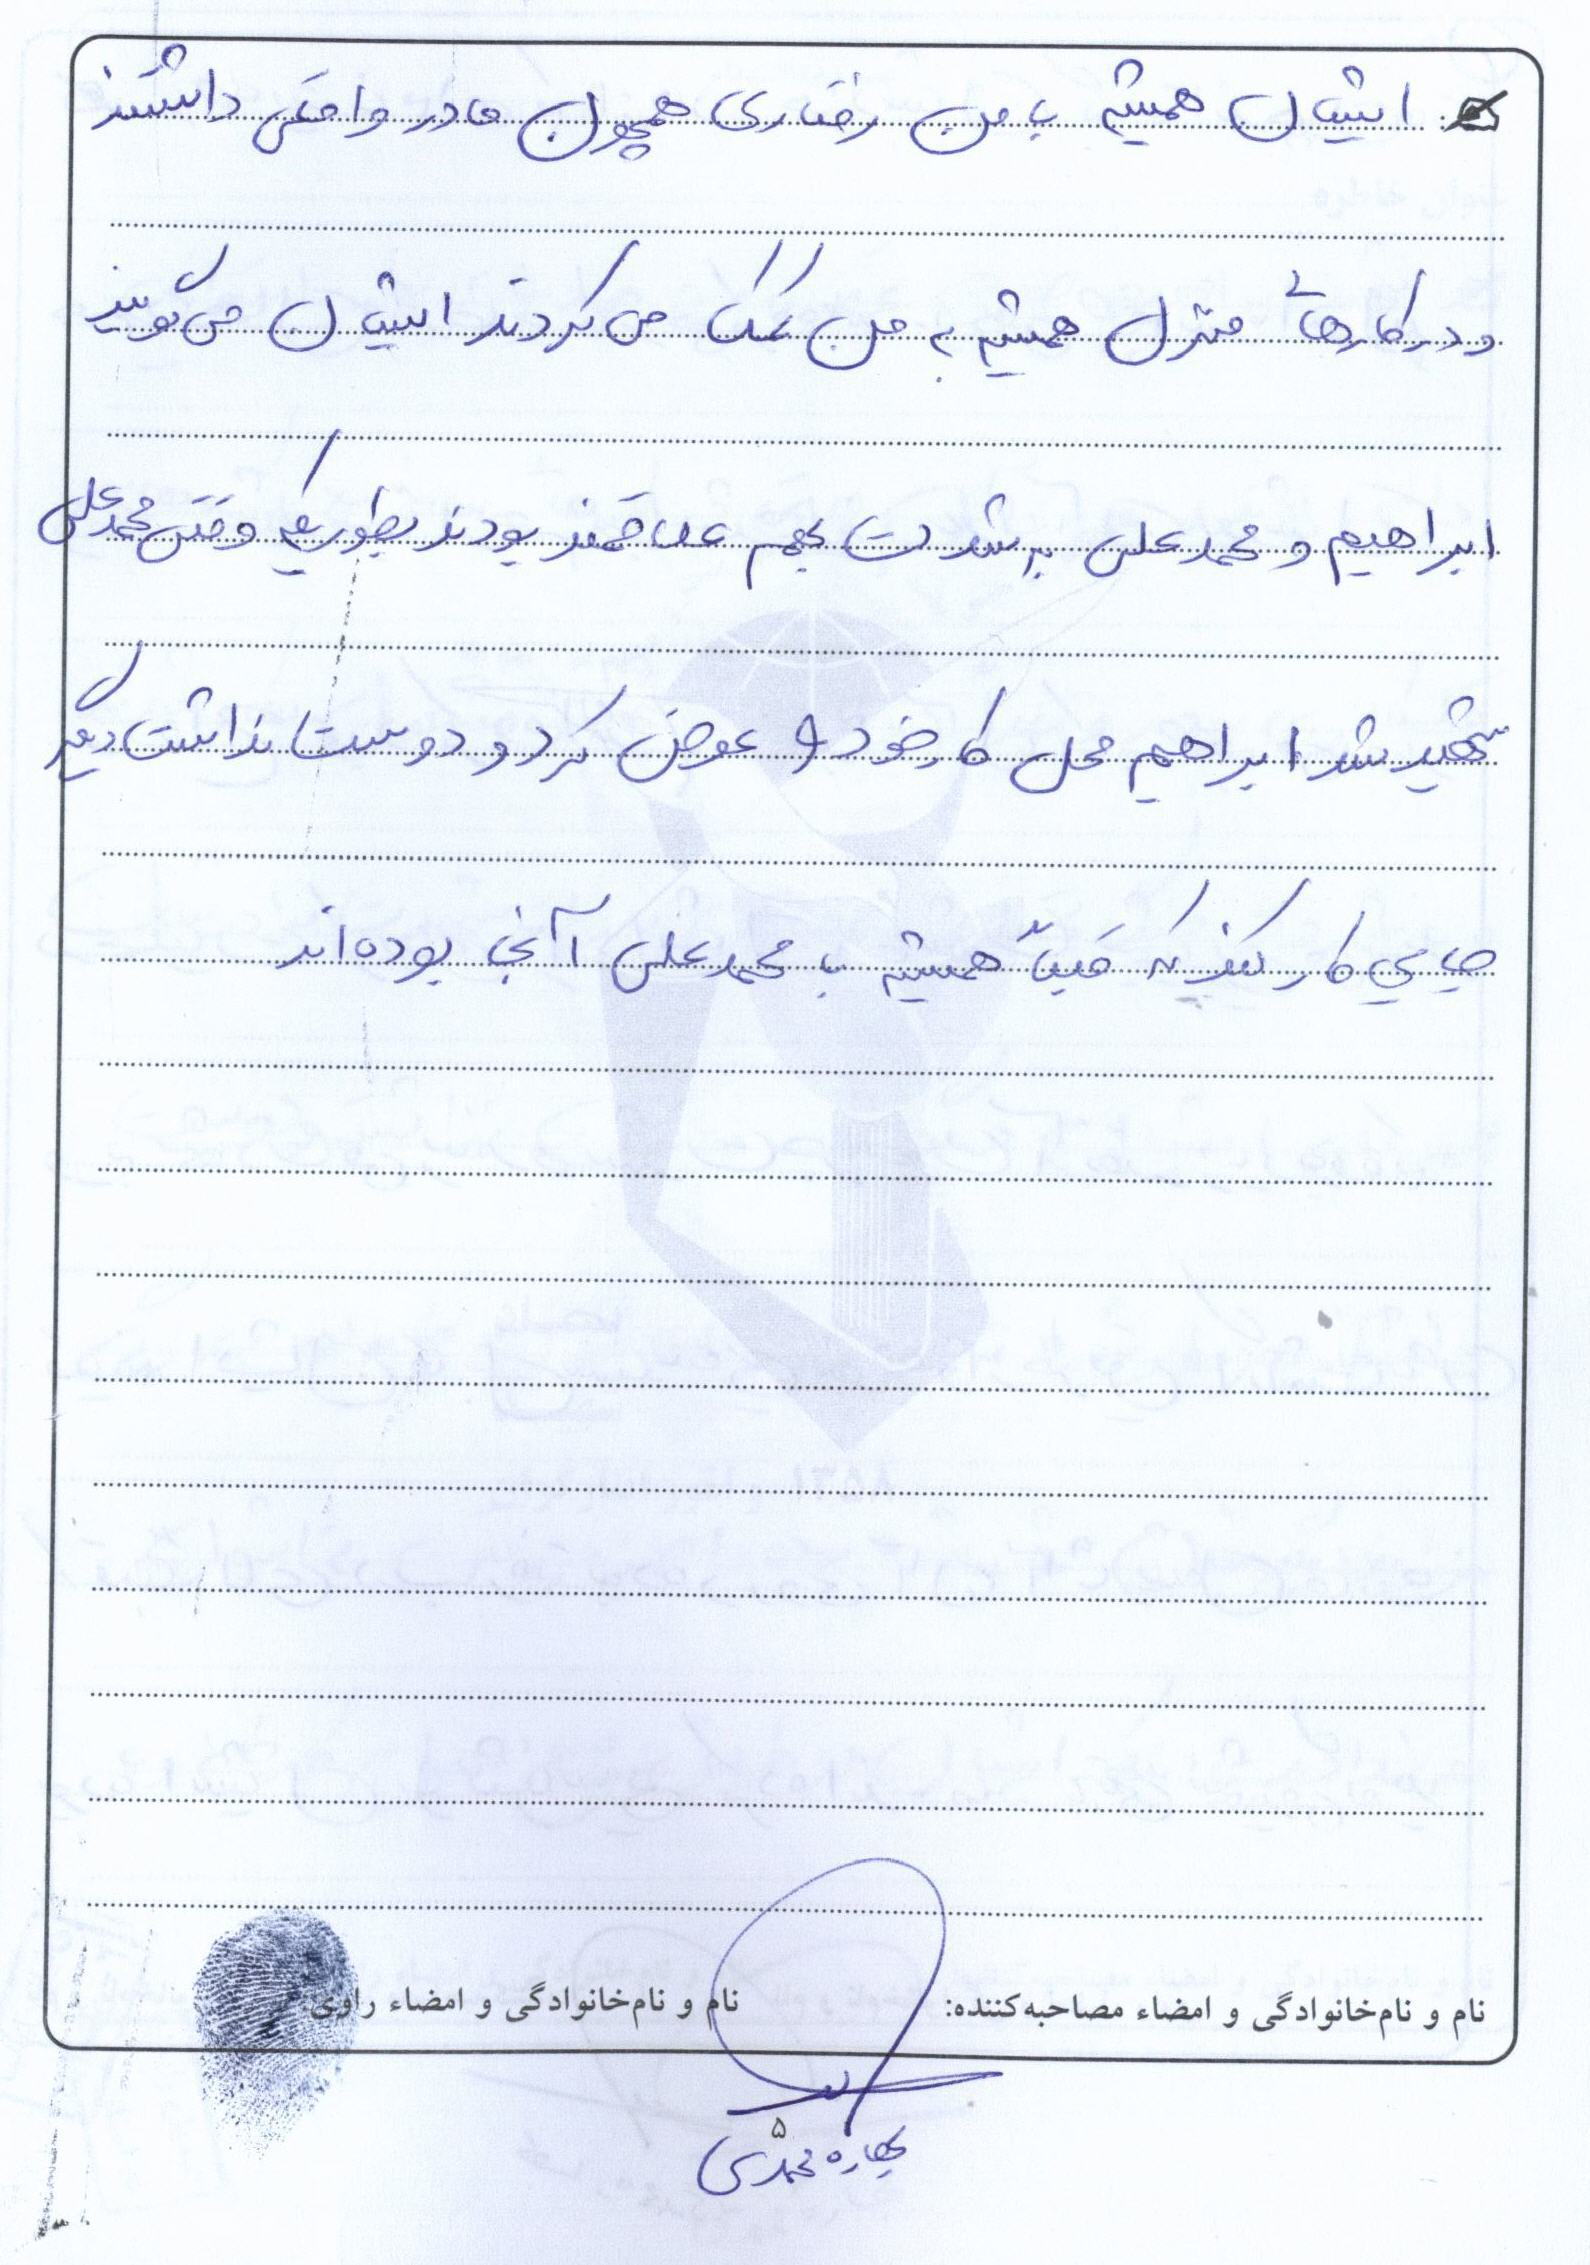 ایشان همیشه با من رفتاری همچون مادر واقعی داشتند
و در کارهای منزل همیشه به من کمک می‌کردند ایشان می‌گویند
ابراهیم و محمدعلی به شدت بهم علاقمند بودند بطوریکه وقتی محمدعلی
شهید شد ابراهیم محل کار خود را عوض کرد و دوست نداشت دیگر
جایی کار کند که قبلاً همیشه با محمدعلی آنجا بوده‌اند
نام و نام‌خانوادگی و امضاء مصاحبه‌کننده: نام و نام‌خانوادگی و امضاء راوی:
۵
بهاره محمدی